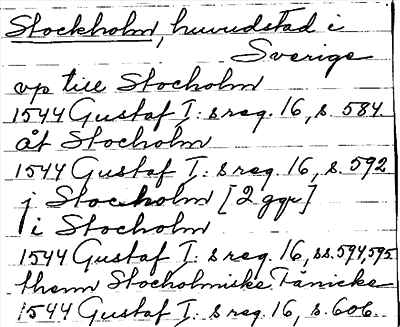 Stockholm, huvudstad i
Sverige
vp till Stocholm
1544 Gustaf I: s reg. 16, s. 584.
åt Stocholm
1544 Gustaf I: s reg. 16, s. 592
j Stocholm [2 ggr]
i Stocholm
1544 Gustaf I: s reg. 16, ss. 594, 595
thenn Stocholmiske Tänicke
1544 Gustaf I: s reg. 16, s. 606.